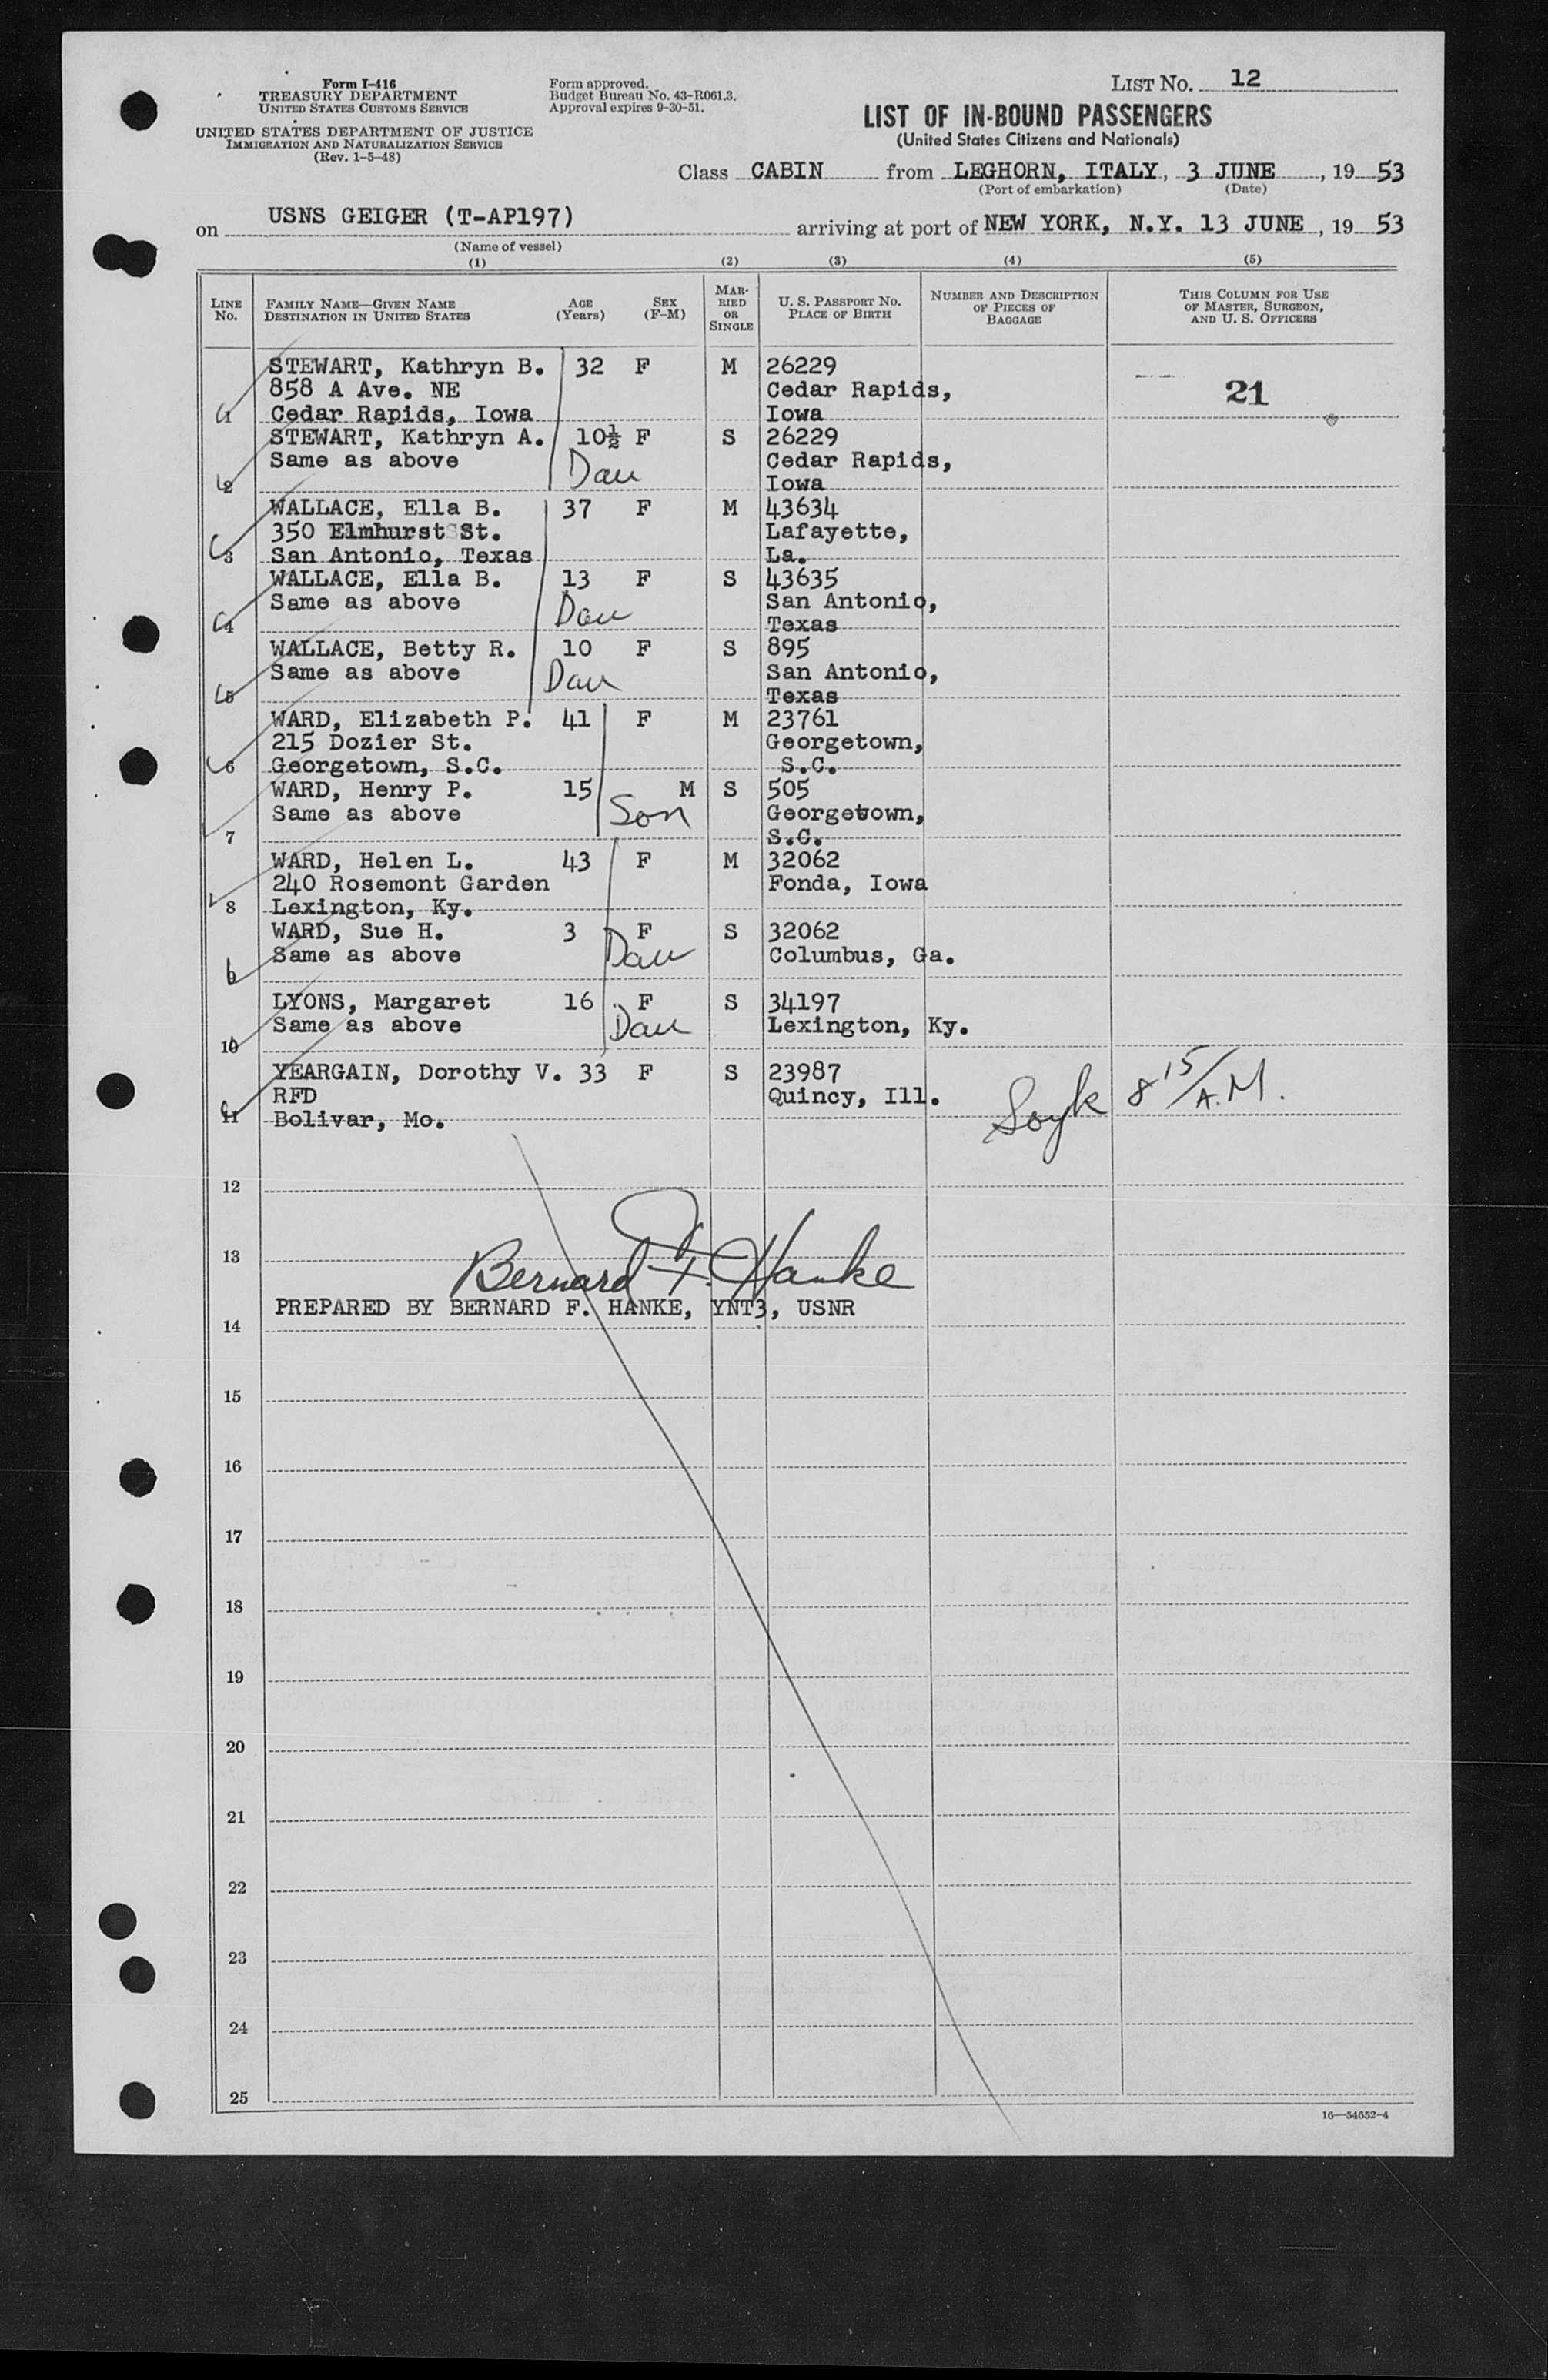 Form I-416
TREASURY DEPARTMENT
UNITED STATES CUSTOMS SERVICE
UNITED STATES DEPARTMENT OF JUSTICE
IMMIGRATION AND NATURALIZATION SERVICE
(Rev. 1-5-48)
Form approved.
Budget Bureau No. 43-R061.3.
Approval expires 9-30-51.
LIST No. 12
LIST OF IN-BOUND PASSENGERS
(United States Citizens and Nationals)
Class CABIN from LEGHORN, ITALY, 3 JUNE, 19 53
(Port of embarkation) (Date)
on USNS GEIGER (T-AP197) arriving at port of NEW YORK, N.Y. 13 JUNE, 19 53
(Name of vessel)
(1) (2) (3) (4) (5)
LINE No. FAMILY NAME—GIVEN NAME DESTINATION IN UNITED STATES AGE (Years) SEX (F-M) MARRIED OR SINGLE U. S. PASSPORT No. PLACE OF BIRTH NUMBER AND DESCRIPTION OF PIECES OF BAGGAGE THIS COLUMN FOR USE OF MASTER, SURGEON, AND U. S. OFFICERS
STEWART, Kathryn B. 32 F M 26229
858 A Ave. NE Cedar Rapids, 21
1 Cedar Rapids, Iowa Iowa
STEWART, Kathryn A. 10½ F S 26229
Same as above Dau Cedar Rapids,
2 Iowa
WALLACE, Ella B. 37 F M 43634
350 Elmhurst St. Lafayette,
3 San Antonio, Texas La.
WALLACE, Ella B. 13 F S 43635
Same as above Dau San Antonio,
4 Texas
WALLACE, Betty R. 10 F S 895
Same as above Dau San Antonio,
5 Texas
WARD, Elizabeth P. 41 F M 23761
215 Dozier St. Georgetown,
6 Georgetown, S.C. S.C.
WARD, Henry P. 15 M S 505
Same as above Son Georgetown,
7 S.C.
WARD, Helen L. 43 F M 32062
240 Rosemont Garden Fonda, Iowa
8 Lexington, Ky.
WARD, Sue H. 3 F S 32062
Same as above Dau Columbus, Ga.
9
LYONS, Margaret 16 F S 34197
Same as above Dau Lexington, Ky.
10
YEARGAIN, Dorothy V. 33 F S 23987
RFD Quincy, Ill. 8 15/A.M.
11 Bolivar, Mo.
12
13 Bernard F. Hanke
PREPARED BY BERNARD F. HANKE, YNT3, USNR
14
15
16
17
18
19
20
21
22
23
24
25
16—54652-4